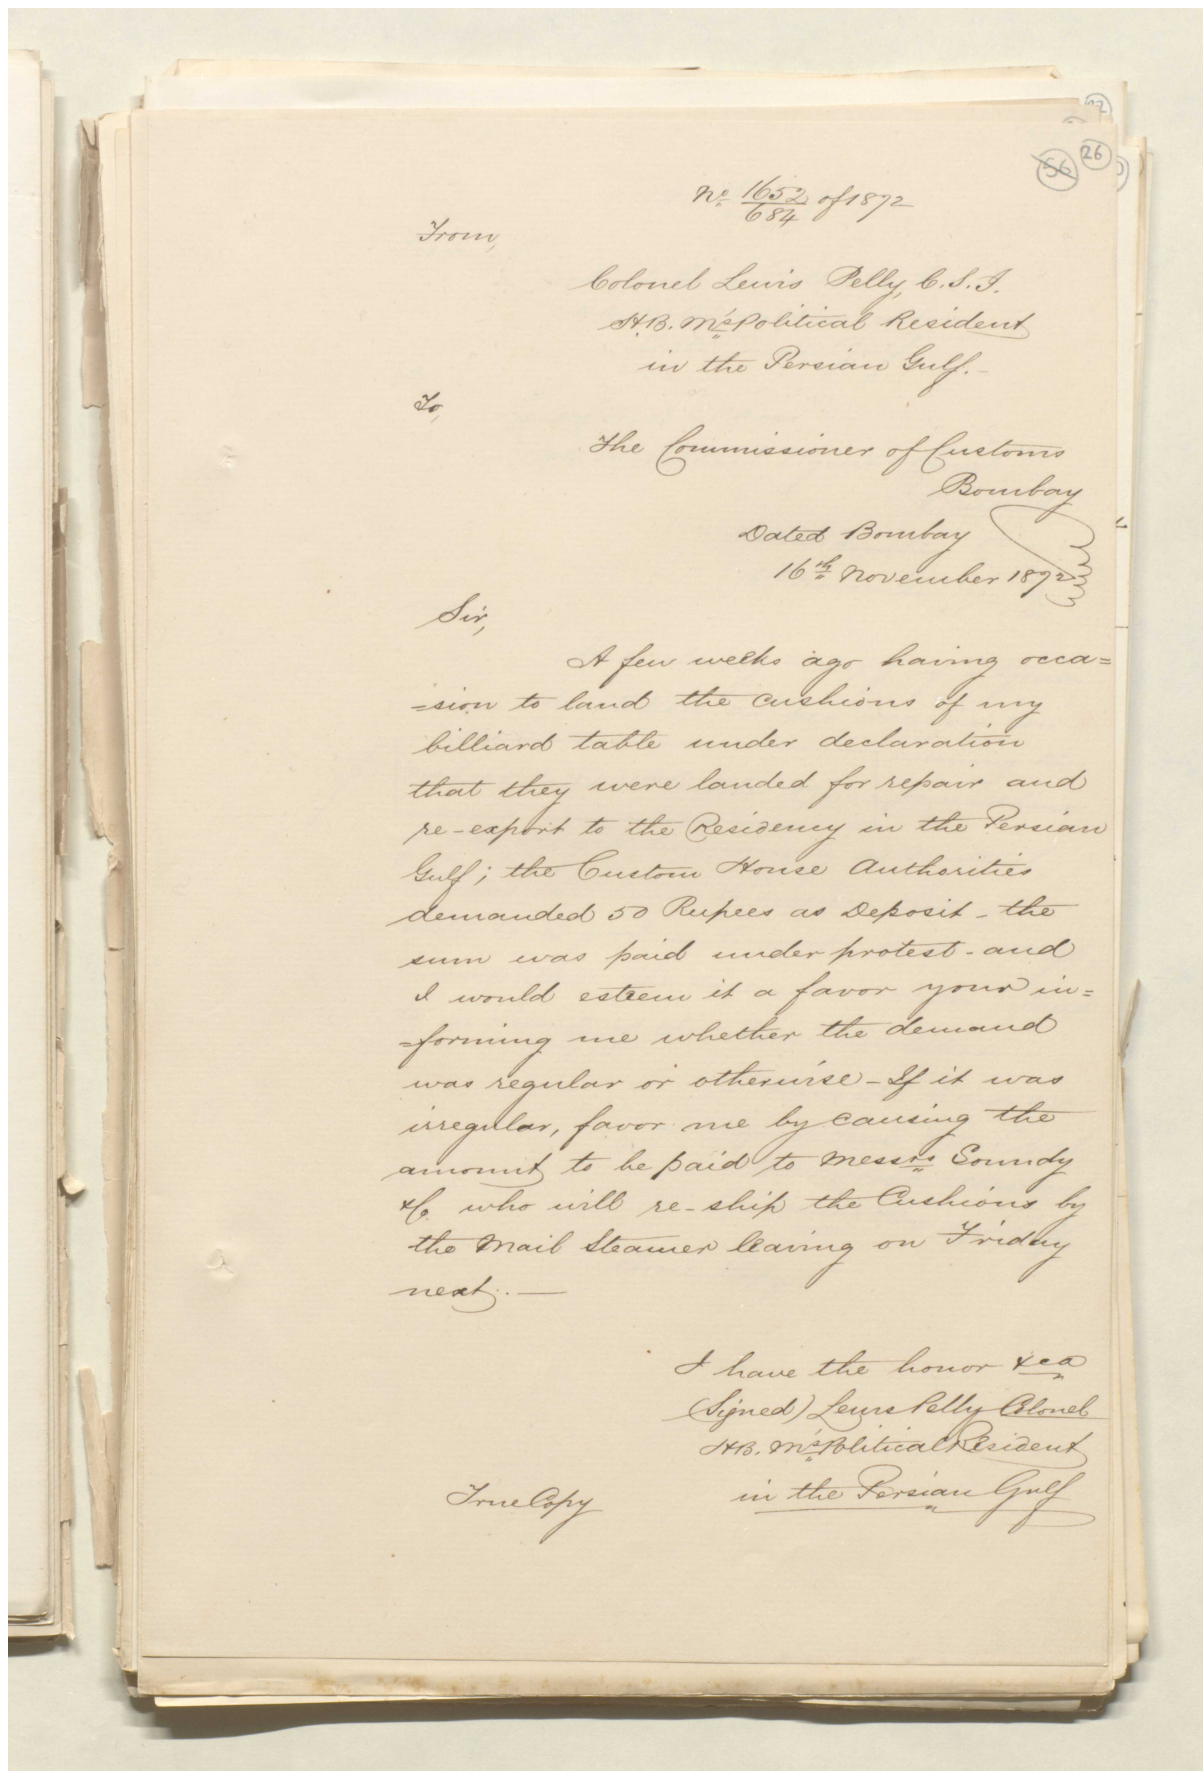 22
56 26
No. 1652/684 of 1872
From,
Colonel Lewis Pelly, C.S.I.
H.B. M's Political Resident
in the Persian Gulf.-
To,
The Commissioner of Customs
Bombay
Dated Bombay
16th November 1872
Sir,
A few weeks ago having occa=
=sion to land the cushions of my
billiard table under declaration
that they were landed for repair and
re-export to the Residency in the Persian
Gulf; the Custom House Authorities
demanded 50 Rupees as Deposit - the
sum was paid under protest - and
I would esteem it a favor your in=
=forming me whether the demand
was regular or otherwise - If it was
irregular, favor me by causing the
amount to be paid to Messrs Soundy
&C. who will re-ship the Cushions by
the Mail Steamer leaving on Friday
next. —
I have the honor &ca
(Signed) Lewis Pelly Colonel
H.B. M's Political Resident
in the Persian Gulf
True Copy